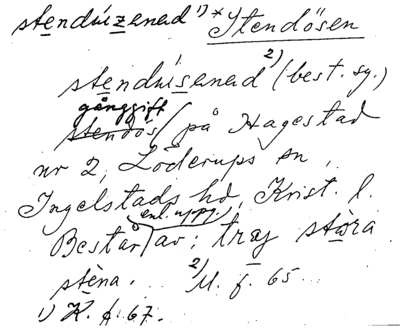 stenduizenad 1) * Stendösen
stenduisenad 2) (best. sg.)
gånggift
stendös / på Hagestad
nr 2, Löderups sn,
Ingelstads hd, Krist. l.
enl. uppg.
Består / av: tray støra
stèna. 2) M. f. 65
1) K. f. 67.